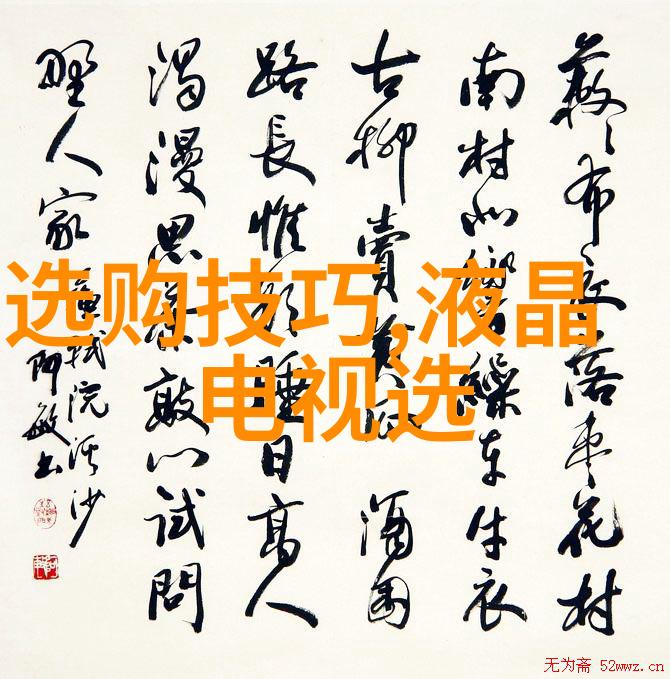 落枣花村
南村北响繰车牛衣
古柳賣黄瓜 酒困
路長惟欲睡日高人
渴漫思茶敲门试問
野人家
軾浣溪沙
阿敏书
选购技巧,液晶
电视选
无为斋 52wwz.cn